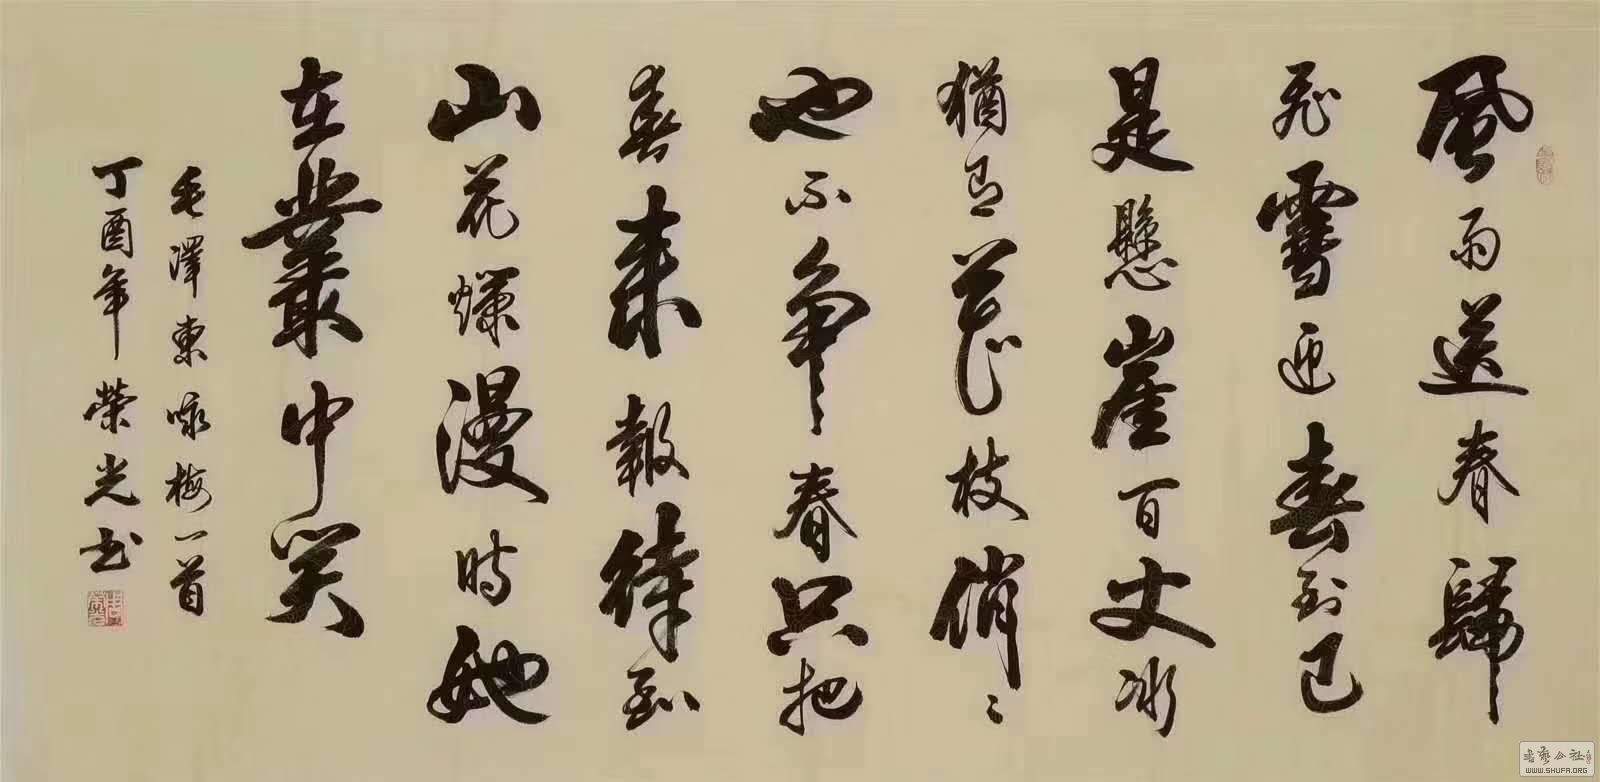 風雨送春歸
飛雪迎春到已
是懸崖百丈冰
猶有花枝俏〻
也不争春只把
春来報待到
山花爛漫時她
在叢中笑
毛澤東咏梅一首
丁酉年榮光书
書藝公社
WWW.SHUFA.ORG